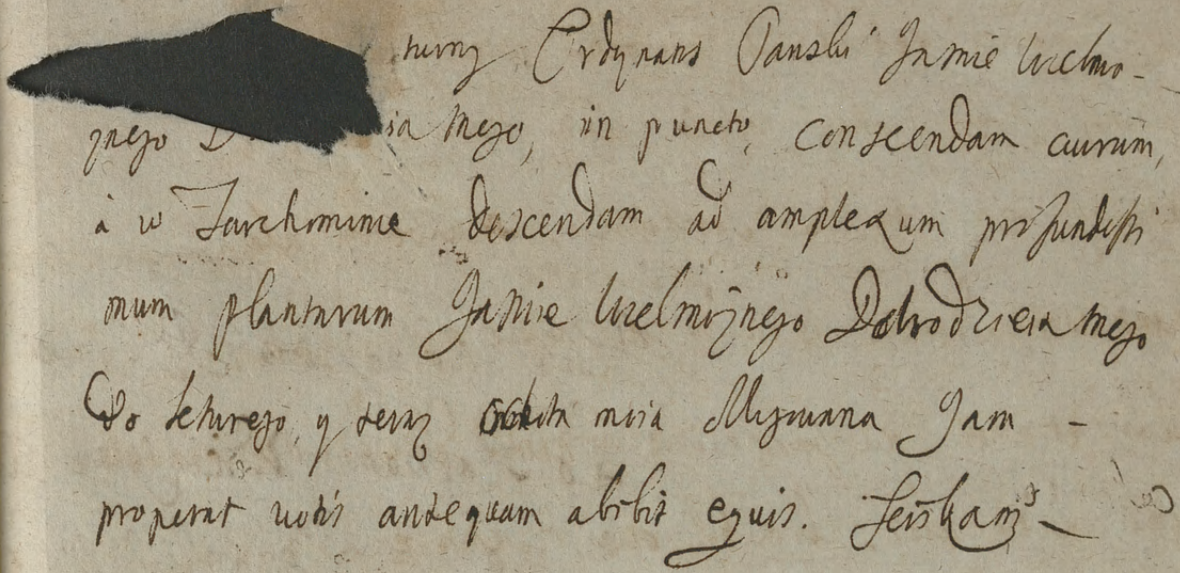 Ordynans Panski Jasnie Wielmo-
znego D ia mego, in puncto, conscendam currum,
à w Tarchominie descendam ad amplexum profundissi
mum plantarum Jasnie Wielmoznego Dobrodzieia mego
Do kturego, y teraz ochota moia Mysiwanna Jam -
properat votis antequam abibit equis. Sciskam